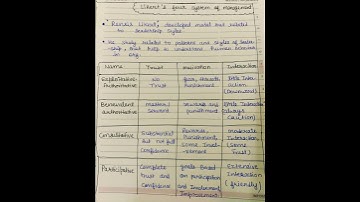 Likert's four system of management
• Rensis Likert, developed model and related
to leadership styles
• his study related to patterns and styles of leader-
ship, that help to understand human behavior
in org
Name Trust motivation Interaction
Exploitative- no fear, threats little Inter-
Authoritative Trust Punishment action
(Downward)
Benevolent master/ rewards and little Interaction
authoritative servant punishment always
caution)
Consultative Substantial Rewards, moderate
but not full Punishments, Interaction
confidence some Invol- (some
vement Trust)
Participative Complete goals Based Extensive
trust and on participation Interaction
Confidence and Involvement, (friendly)
Improvement